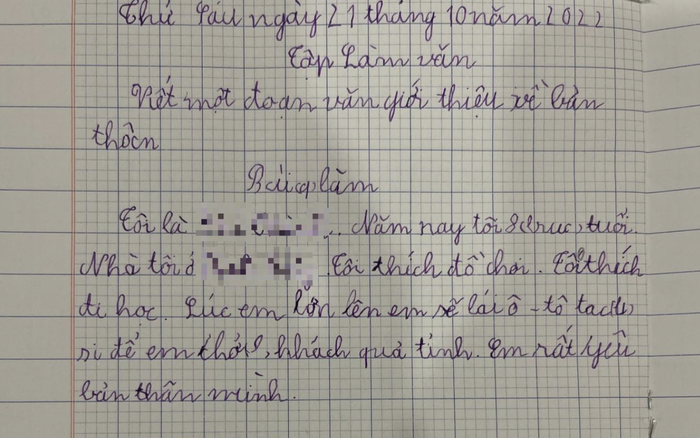 Thứ Sáu ngày 21 tháng 10 năm 2022
Tập Làm văn
Viết một đoạn văn giới thiệu về bản
thân
Bài làm
Tôi là ... Năm nay tôi 8 tuổi.
Nhà tôi ở . Tôi thích đồ chơi. Tôi thích
đi học. Lúc em lớn lên em sẽ lái ô-tô tắc
si để em chở khách quá tỉnh. Em rất yêu
bản thân mình.